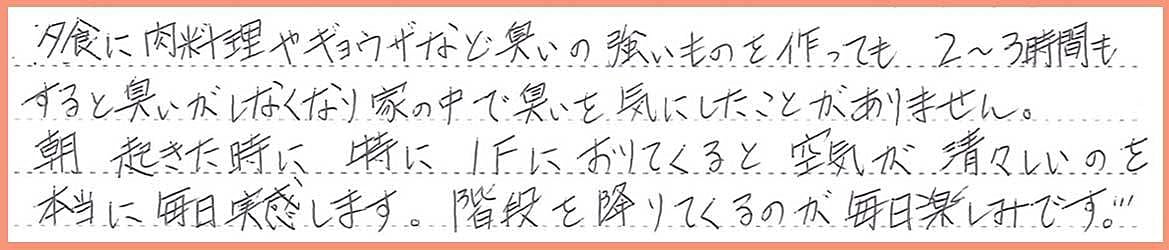 夕食に肉料理やギョウザなど臭いの強いものを作っても 2～3時間も
すると臭いがしなくなり家の中で臭いを気にしたことがありません。
朝 起きた時に 特に 1Fにおりてくると 空気が 清々しいのを
本当に毎日実感します。階段を降りてくるのが毎日楽しみです。!!!